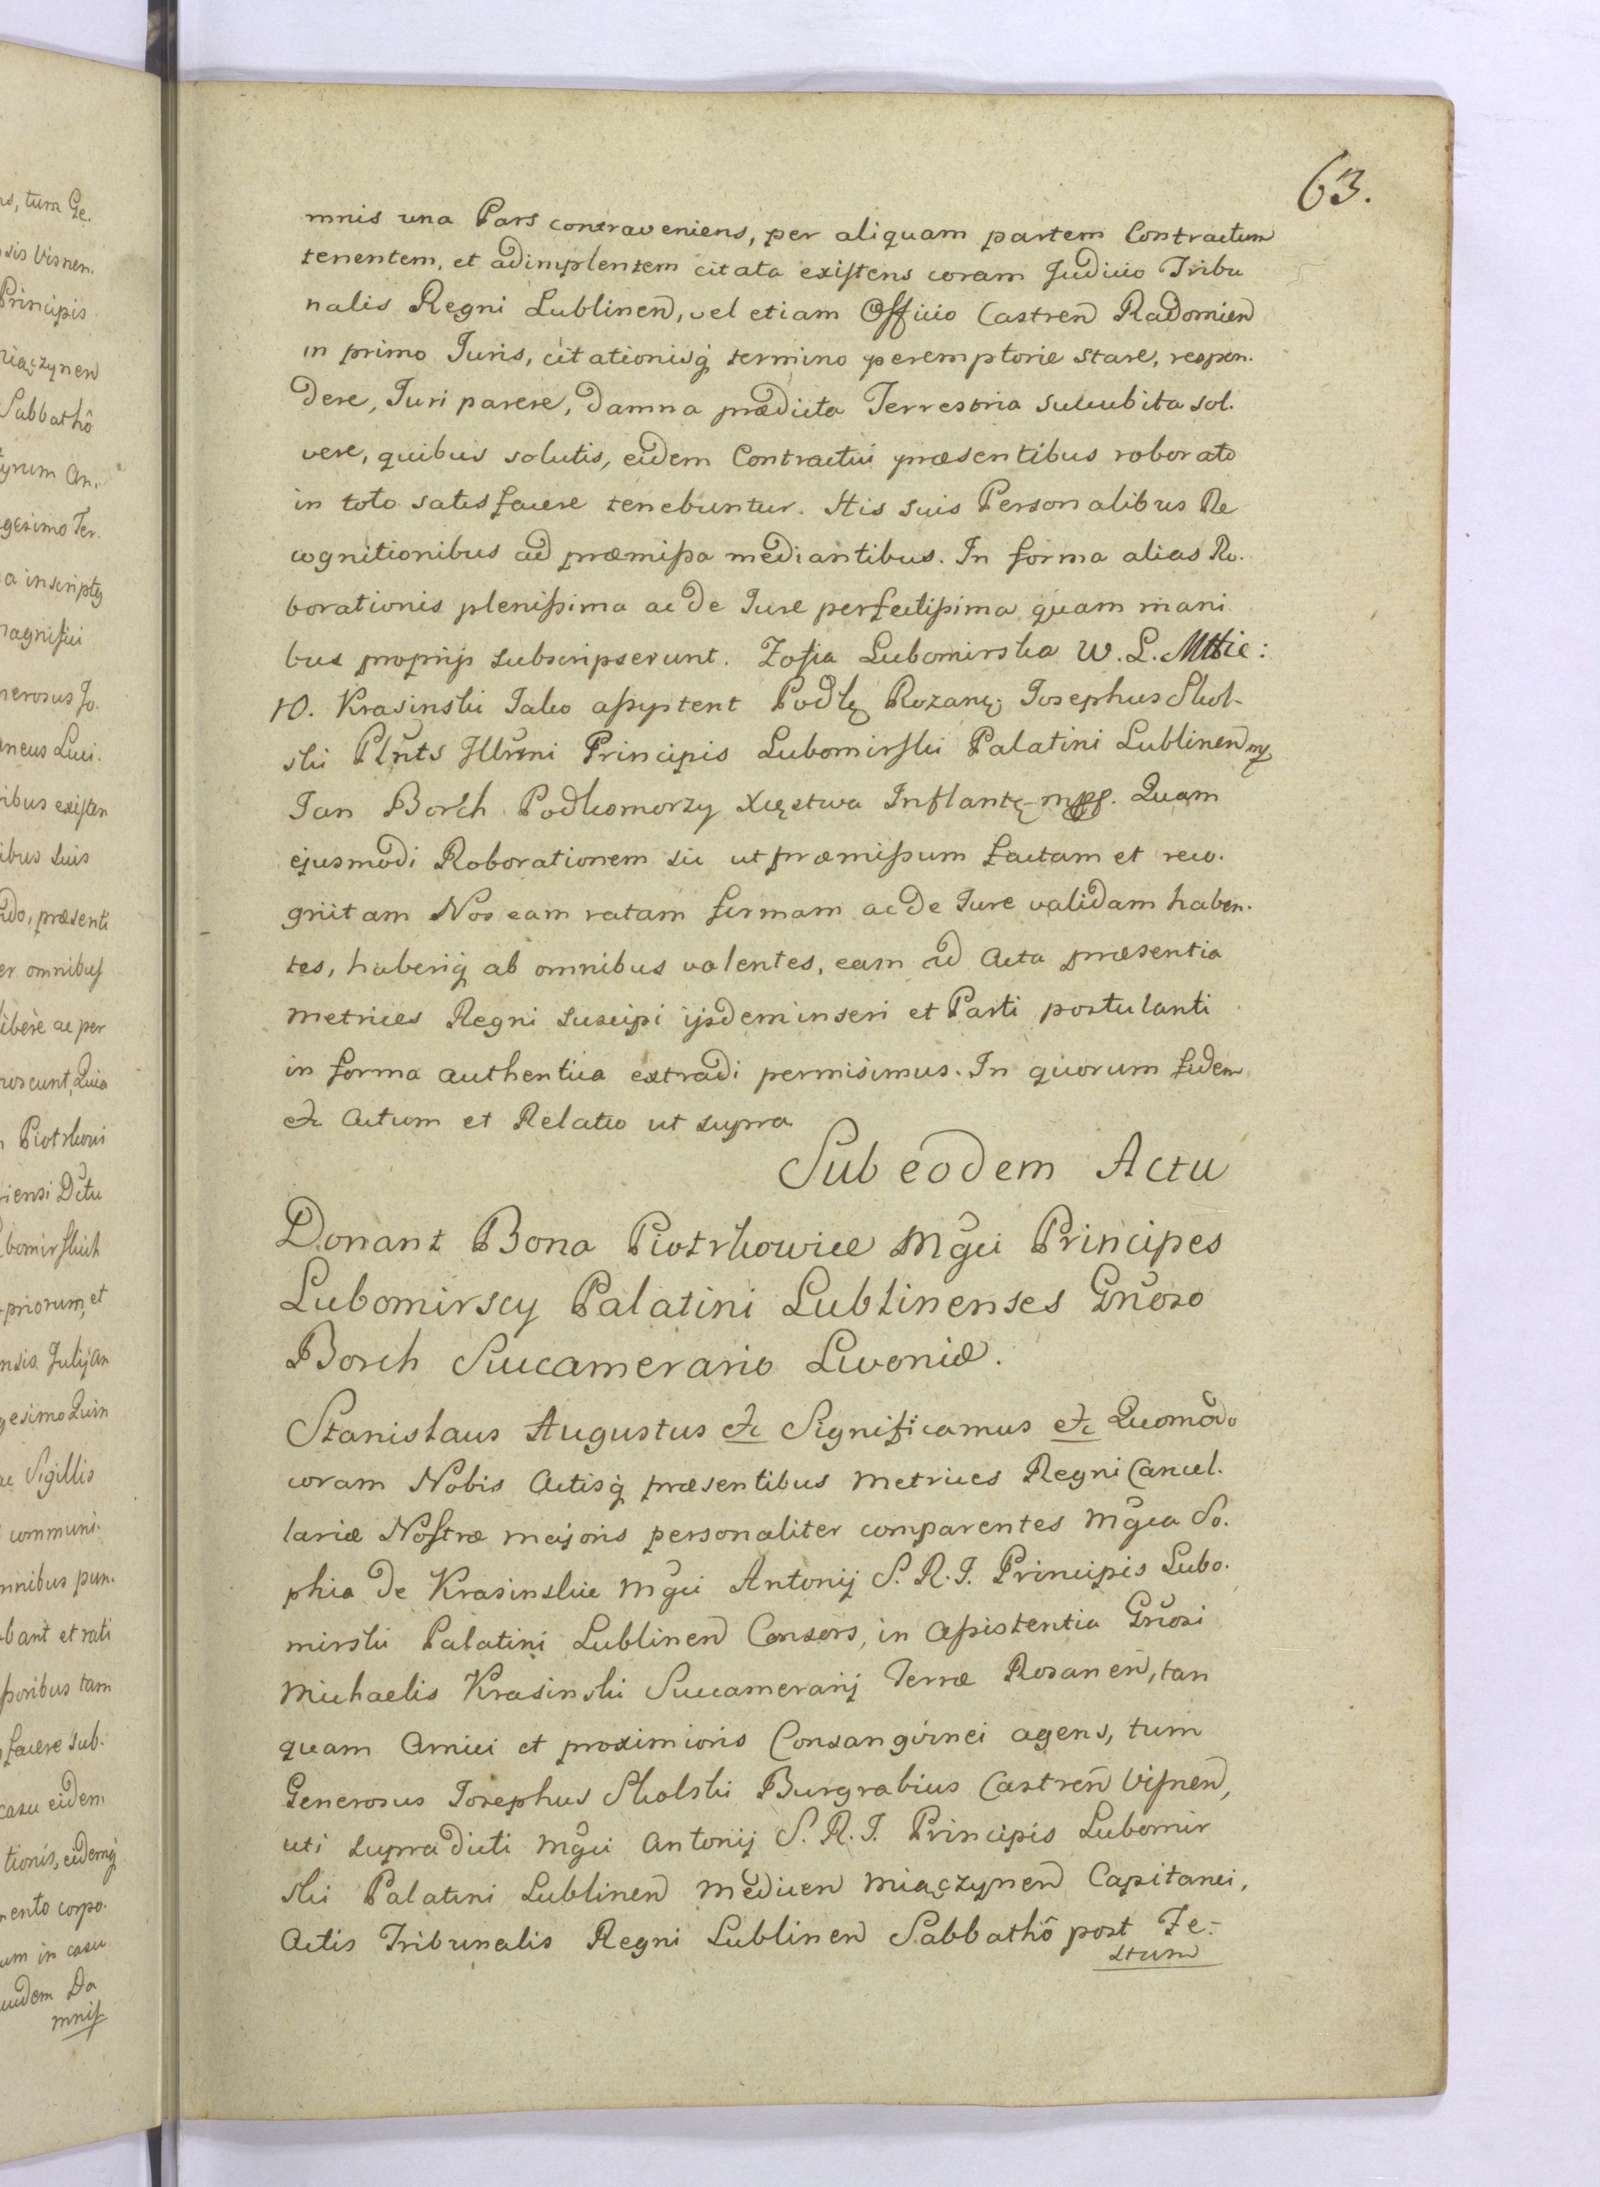 63.
mnis una Pars contraveniens, per aliquam partem Contractum
tenentem, et adimplentem citata existens coram Judicio Tribu
nalis Regni Lublinen, vel etiam Officio Castren Radomien
in primo Juris, citationisq termino peremptorie stare, respon.
dere, Juri parere, damna prædicta Terrestria succubita sol.
vere, quibus solutis, eidem Contractui præsentibus roborato
in toto satisfacere tenebuntur. His suis Personalibus Re
cognitionibus ad præmissa mediantibus. In forma alias Ro.
borationis plenissima ac de Jure perfectissima quam mani
bus proprijs subscripserunt. Zofia Lubomirska W. L.
Krasinski Jako assystent Podk Rozanę Josephus Skol-
ski Plnts Illmi Principis Lubomirski Palatini Lublinen mp
Jan Borch Podkomorzy Xięstwa Inflantę mpp. Quam
ejusmodi Roborationem sic ut præmissum factam et reco.
gnitam Nos eam ratam firmam ac de Jure validam haben.
tes, haberiq ab omnibus volentes, eam ad Acta præsentia
Metrices Regni suscipi ijsdem inseri et Parti postulanti
in forma authentica extradi permisimus. In quorum fidem
etc Actum et Relatio ut supra
Sub eodem Actu
Donant Bona Piotrkowice Mgci Principes
Lubomirscy Palatini Lublinenses Gnoso
Borch Succamerario Livoniæ.
Stanislaus Augustus etc Significamus etc Quomodo
coram Nobis Actisq præsentibus Metrices Regni Cancel.
lariæ Nostræ majoris personaliter comparentes Mgca So.
phia de Krasinskie Mgci Antonij S. R. I. Principis Lubo.
mirski Palatini Lublinen Consors, in assistentia Gnosi
Michaelis Krasinski Succamerarij Terræ Rosanen, tan
quam Amici et proximioris Consangvinei agens, tum
Generosus Josephus Skolski Burgrabius Castren Visnen,
uti supradicti Mgci Antonij S. R. I. Principis Lubomir
ski Palatini Lublinen Medicen Miączynen Capitanei,
Actis Tribunalis Regni Lublinen Sabbathô post Fe-
stum